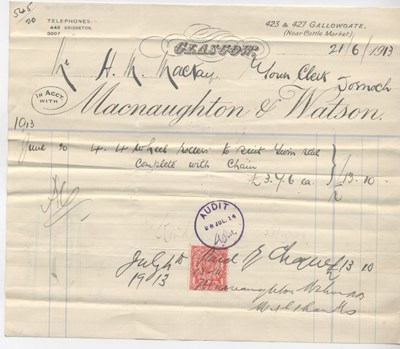 TELEPHONES
448 BRIDGETON.
3007
423 & 427 GALLOWGATE.
(Near Cattle Market)
GLASGOW, 21/6/1913
Mr H. M. Mackay, Town Clerk Dornoch
IN ACCT WITH
Macnaughton & Watson.
1913
June 20 4. 4 Wheel
complete with Chain
£3.7/6 ea. 13. 10. -
AUDIT
JUL. 14
July 4th Paid By Cheque £13 10
1913
Macnaughton & Watson
With thanks